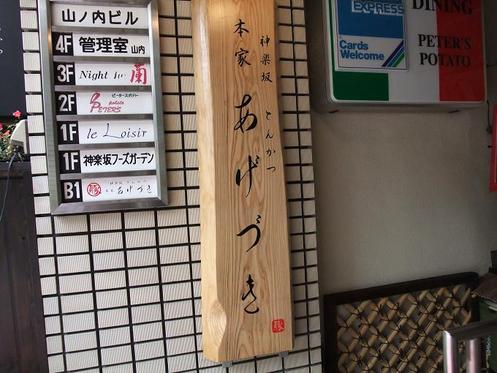 山ノ内ビル
4F 管理室 山内
3F Night inn 蘭
2F ピーターズポテト potato PETER'S
1F le Loisir
1F 神楽坂フーズガーデン
B1 あげづき
神楽坂 とんかつ
本家 あげづき
豚
EXPRESS
Cards
Welcome
DINING
PETER'S
POTATO